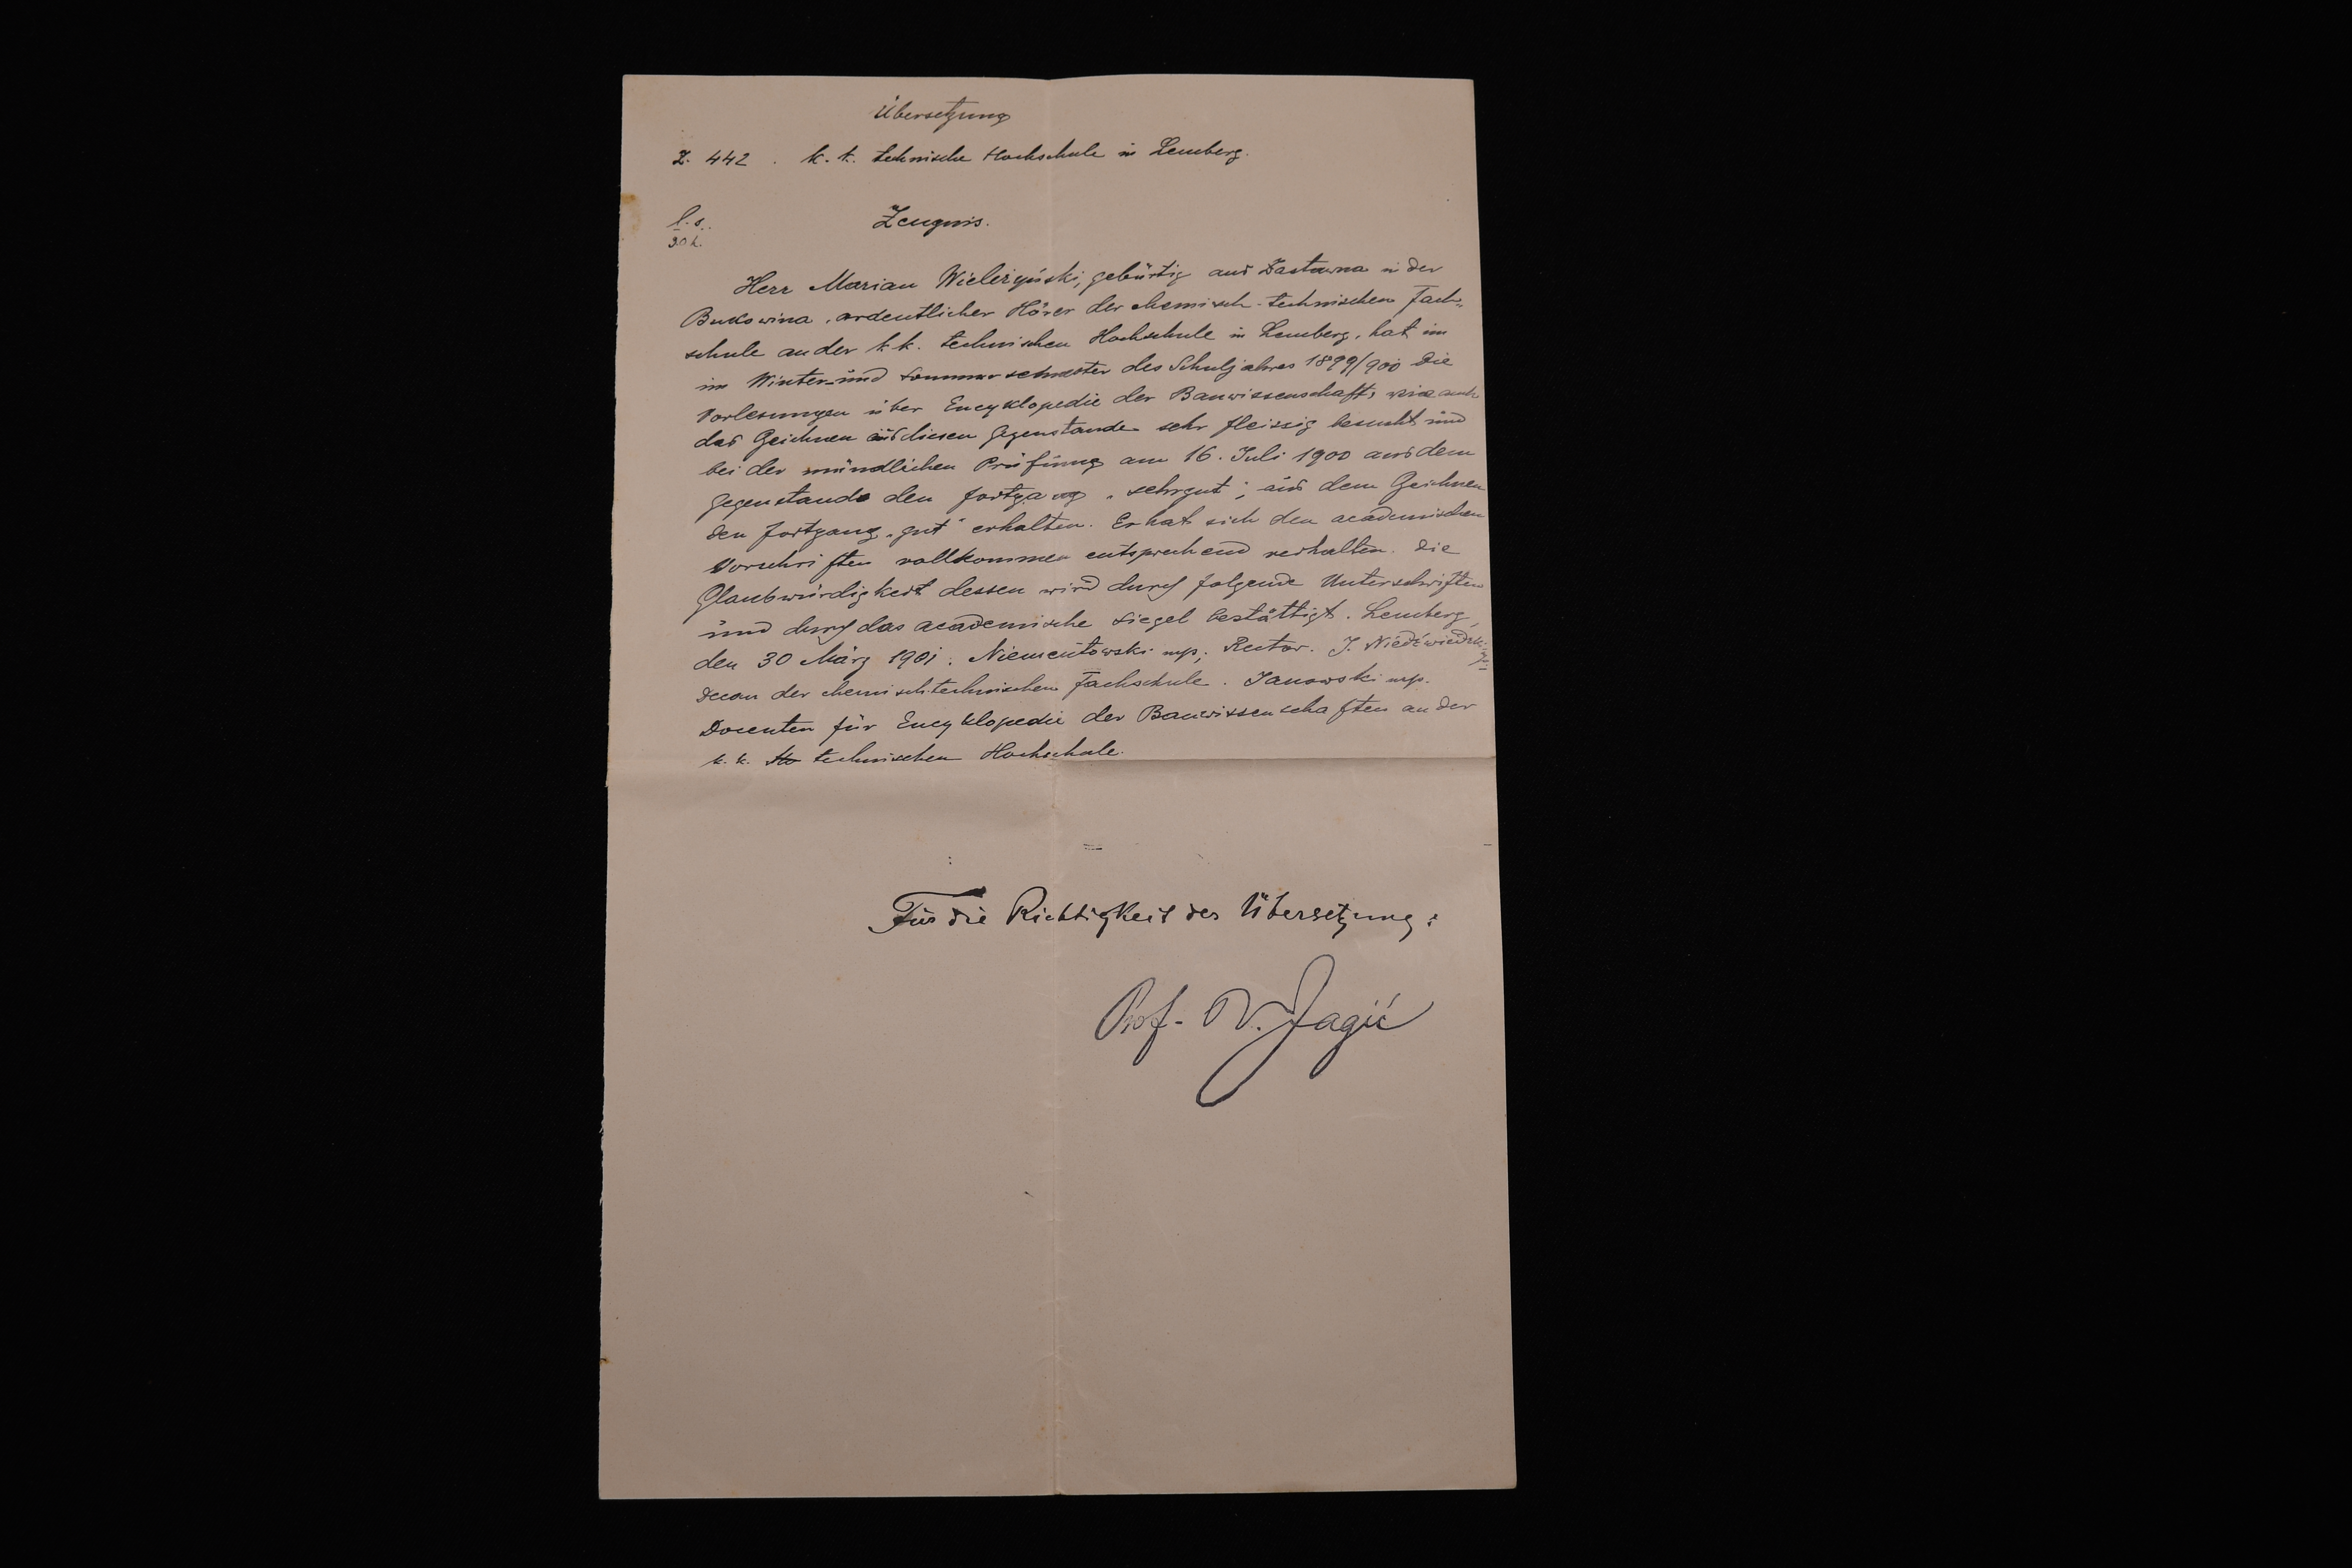 Übersetzung
Z. 442 . k. k. technische Hochschule in Lemberg.
l. s.
30 h.
Zeugnis.
Herr Marian Wieleżyński, gebürtig aus Zastawna in der
Bukowina, ordentlicher Hörer der chemisch-technischen Fach-
schule an der k. k. technischen Hochschule in Lemberg, hat im
im Winter- und Sommersemester des Schuljahres 1899/900 die
Vorlesungen über Encyklopedie der Bauwissenschaft, wie auch
das Zeichnen aus diesen Gegenstande sehr fleissig besucht und
bei der mündlichen Prüfung am 16. Juli 1900 aus dem
Gegenstande den Fortgang „sehrgut", aus dem Zeichnen
den Fortgang „gut" erhalten. Er hat sich den academischen
Vorschriften vollkommen entsprechend verhalten. Die
Glaubwürdigkeit dessen wird durch folgende Unterschriften
und durch das academische Siegel bestättigt. Lemberg,
den 30 März 1901. Niementowski mp, Rector. J. Niedźwiedzki mp.
Decan der chemisch-technischen Fachschule. Janowski mp.
Docenten für Encyklopedie der Bauwissenschaften an der
k. k. Ho technischen Hochschule.
Für die Richtigkeit der Übersetzung:
Prof. V. Jagić